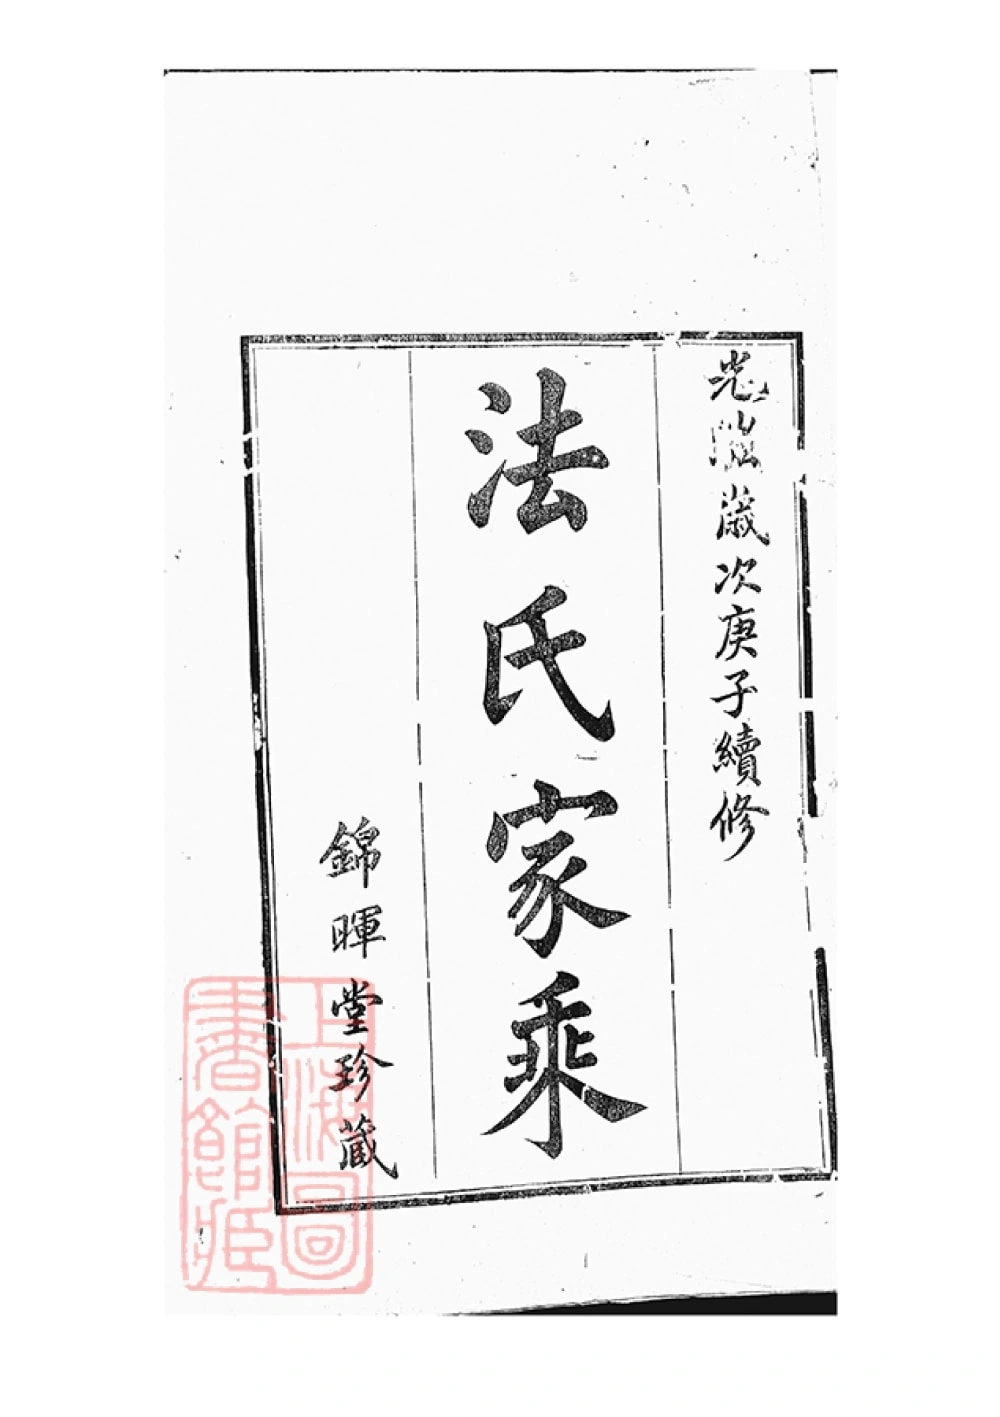 光緒歲次庚子續修
法氏家乘
錦暉堂珍藏
上海圖書館藏